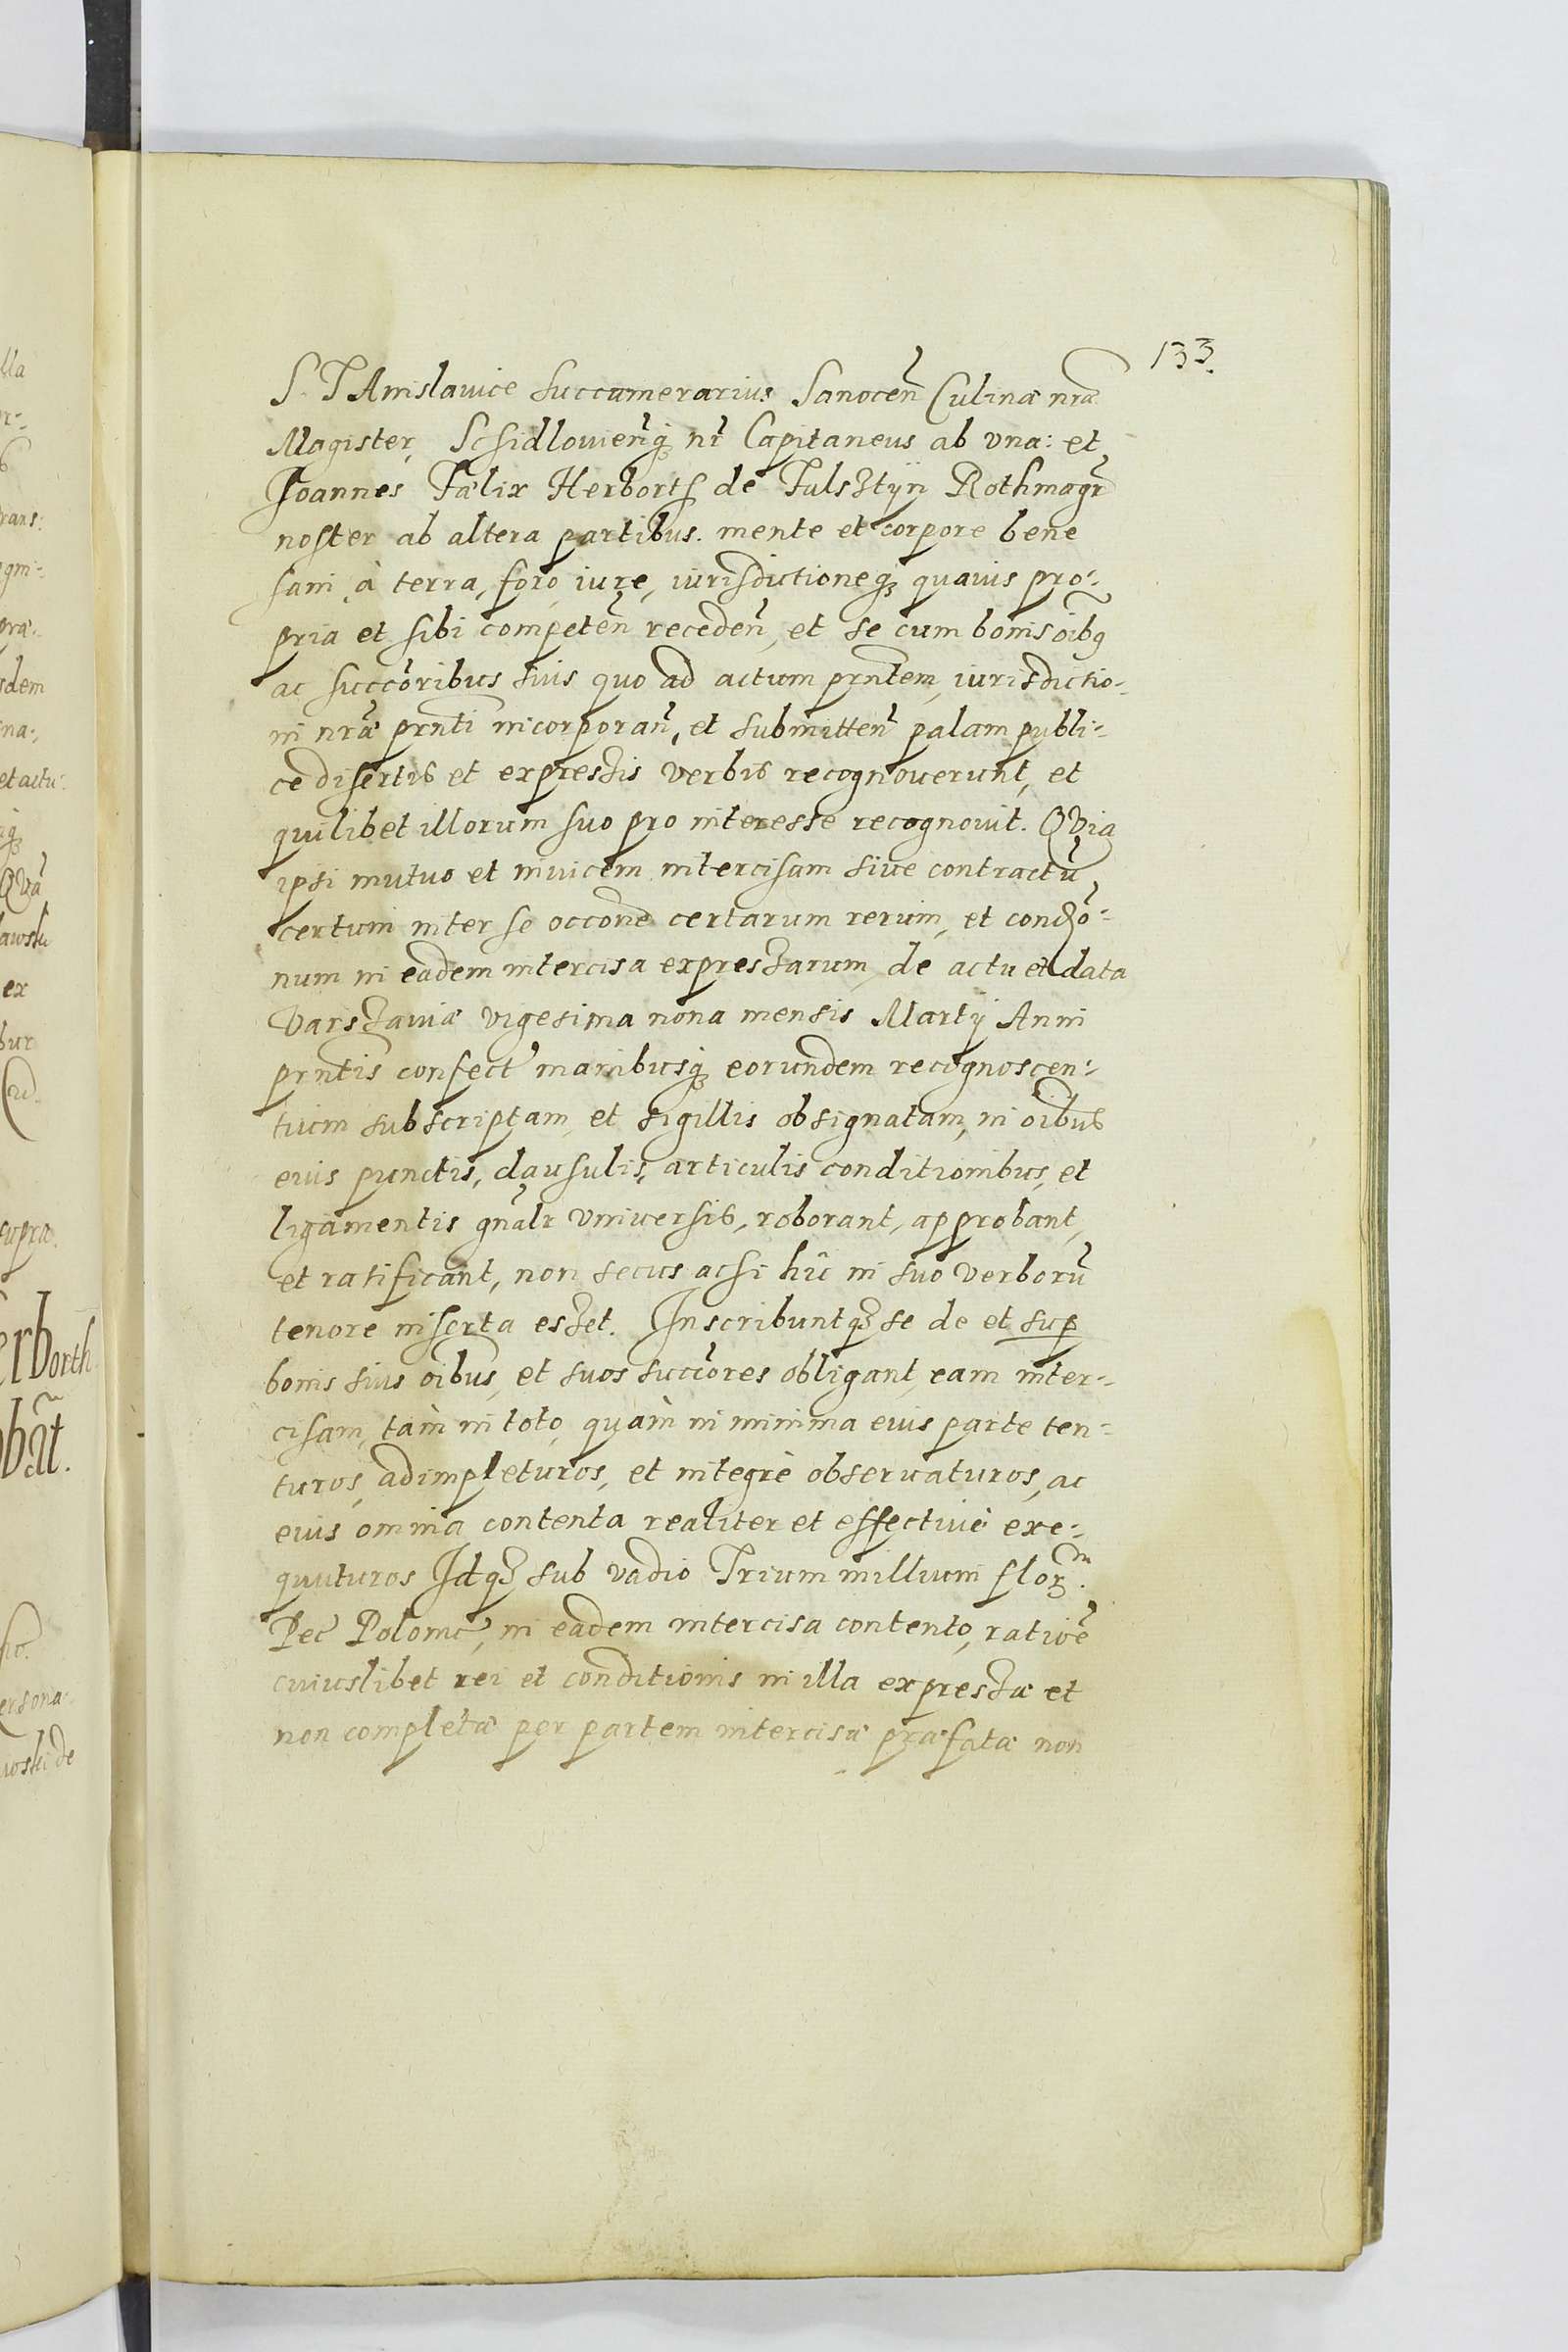 133.
S. TAnislavice Succamerarius Sanocen̄ Culinæ nr̄æ
Magister, Schidlovien̄q; nr̄ Capitaneus ab vna: et
Joannes Fælix Herborth de Fulsztÿn Rothmagr̄
noster ab altera partibus. mente et corpore bene
sani, à terra, foro, iure, iurisdictioneq; quavis pro-
pria et sibi competen̄ receden̄, et se cum bonis oībq
ac succōribus suis quo ad actum prn̄tem, iurisdictio-
ni nr̄æ prn̄ti incorporan̄, et submitten̄ palam publi-
ce disertis et expressis verbis recognoverunt, et
quilibet illorum suo pro interesse recognovit. QVia
ipsi mutuo et invicem intercisam sive contractū
certum inter se occōne certarum rerum, et condō-
num in eadem intercisa expressarum, de actu et data
Varszaviæ vigesima nona mensis Martij Anni
prn̄tis confect' manibusq; eorundem recognoscen-
tium subscriptam, et sigillis obsignatam, in oībus
eius punctis, clausulis, articulis conditionibus, et
ligamentis gn̄alr vniversis, roborant, approbant,
et ratificant, non secus acsi hīc in suo verborū
tenore inserta esset. Inscribuntq; se de et sup
bonis suis oībus, et suos succōres obligant, eam inter-
cisam, tàm in toto, quàm in minima eius parte ten-
turos, adimpleturos, et integrè observaturos, ac
eius omnia contenta realiter et effectivè exe-
quuturos Idq; sub vadio Trium millium florm.
Pec Polonic̄, in eadem intercisa contento, ratiōe
cuiuslibet rei et conditionis in illa expressæ et
non completæ per partem intercisæ præfatæ non